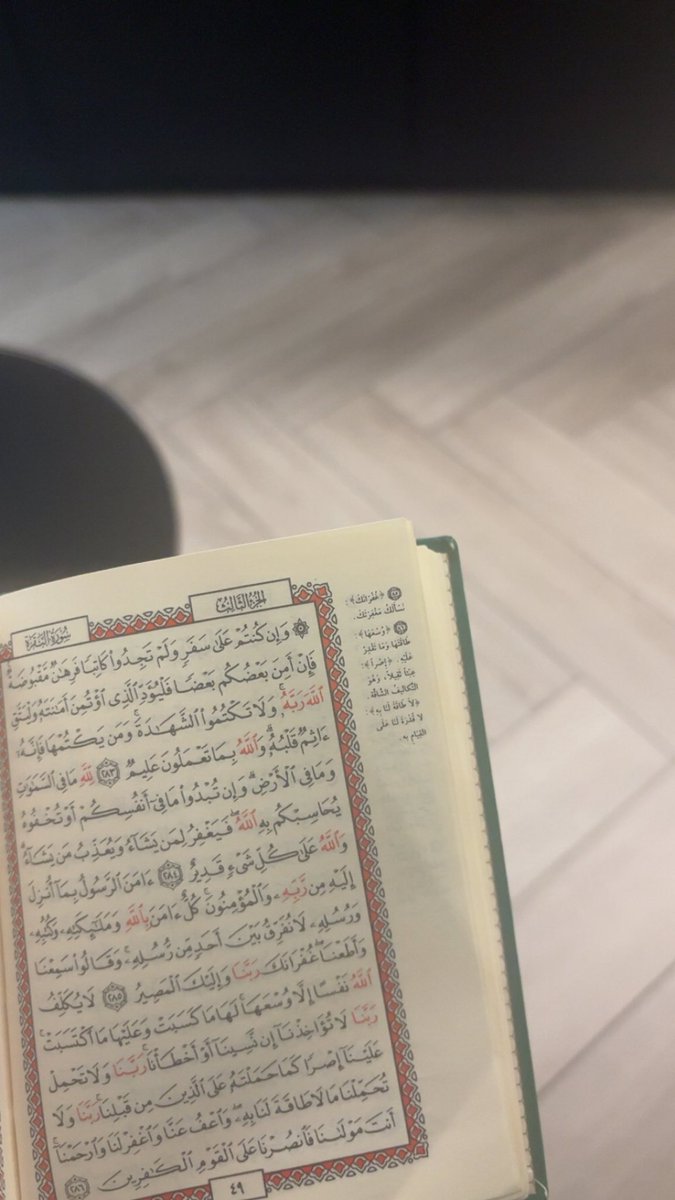 الجزء الثالث
سورة البقرة
۞ وَإِن كُنتُمْ عَلَىٰ سَفَرٍ وَلَمْ تَجِدُوا۟ كَاتِبًا فَرِهَٰنٌ مَّقْبُوضَةٌ
فَإِنْ أَمِنَ بَعْضُكُم بَعْضًا فَلْيُؤَدِّ ٱلَّذِى ٱؤْتُمِنَ أَمَٰنَتَهُۥ وَلْيَتَّقِ
ٱللَّهَ رَبَّهُۥ ۗ وَلَا تَكْتُمُوا۟ ٱلشَّهَٰدَةَ ۚ وَمَن يَكْتُمْهَا فَإِنَّهُۥٓ
ءَاثِمٌ قَلْبُهُۥ ۗ وَٱللَّهُ بِمَا تَعْمَلُونَ عَلِيمٌ ٢٨٣ لِّلَّهِ مَا فِى ٱلسَّمَٰوَٰتِ
وَمَا فِى ٱلْأَرْضِ ۗ وَإِن تُبْدُوا۟ مَا فِىٓ أَنفُسِكُمْ أَوْ تُخْفُوهُ
يُحَاسِبْكُم بِهِ ٱللَّهُ ۖ فَيَغْفِرُ لِمَن يَشَآءُ وَيُعَذِّبُ مَن يَشَآءُ ۗ
وَٱللَّهُ عَلَىٰ كُلِّ شَىْءٍ قَدِيرٌ ٢٨٤ ءَامَنَ ٱلرَّسُولُ بِمَآ أُنزِلَ
إِلَيْهِ مِن رَّبِّهِۦ وَٱلْمُؤْمِنُونَ ۚ كُلٌّ ءَامَنَ بِٱللَّهِ وَمَلَٰٓئِكَتِهِۦ وَكُتُبِهِۦ
وَرُسُلِهِۦ لَا نُفَرِّقُ بَيْنَ أَحَدٍ مِّن رُّسُلِهِۦ ۚ وَقَالُوا۟ سَمِعْنَا
وَأَطَعْنَا ۖ غُفْرَانَكَ رَبَّنَا وَإِلَيْكَ ٱلْمَصِيرُ ٢٨٥ لَا يُكَلِّفُ
ٱللَّهُ نَفْسًا إِلَّا وُسْعَهَا ۚ لَهَا مَا كَسَبَتْ وَعَلَيْهَا مَا ٱكْتَسَبَتْ ۗ
رَبَّنَا لَا تُؤَاخِذْنَآ إِن نَّسِينَآ أَوْ أَخْطَأْنَا ۚ رَبَّنَا وَلَا تَحْمِلْ
عَلَيْنَآ إِصْرًا كَمَا حَمَلْتَهُۥ عَلَى ٱلَّذِينَ مِن قَبْلِنَا ۚ رَبَّنَا وَلَا
تُحَمِّلْنَا مَا لَا طَاقَةَ لَنَا بِهِۦ ۖ وَٱعْفُ عَنَّا وَٱغْفِرْ لَنَا وَٱرْحَمْنَآ ۚ
أَنتَ مَوْلَىٰنَا فَٱنصُرْنَا عَلَى ٱلْقَوْمِ ٱلْكَٰفِرِينَ ٢٨٦
٤٩
﴿غُفْرَانَكَ﴾:
نَسْأَلُكَ مَغْفِرَتَكَ.
﴿وُسْعَهَا﴾:
طَاقَتَهَا وَمَا تَقْدِرُ
عَلَيْهِ. ﴿إِصْرًا﴾:
عِبْئًا ثَقِيلًا، وَهُوَ
التَّكَالِيفُ الشَّاقَّةُ.
﴿لَا طَاقَةَ لَنَا بِهِ﴾:
لَا قُدْرَةَ لَنَا عَلَى
القِيَامِ بِهِ.